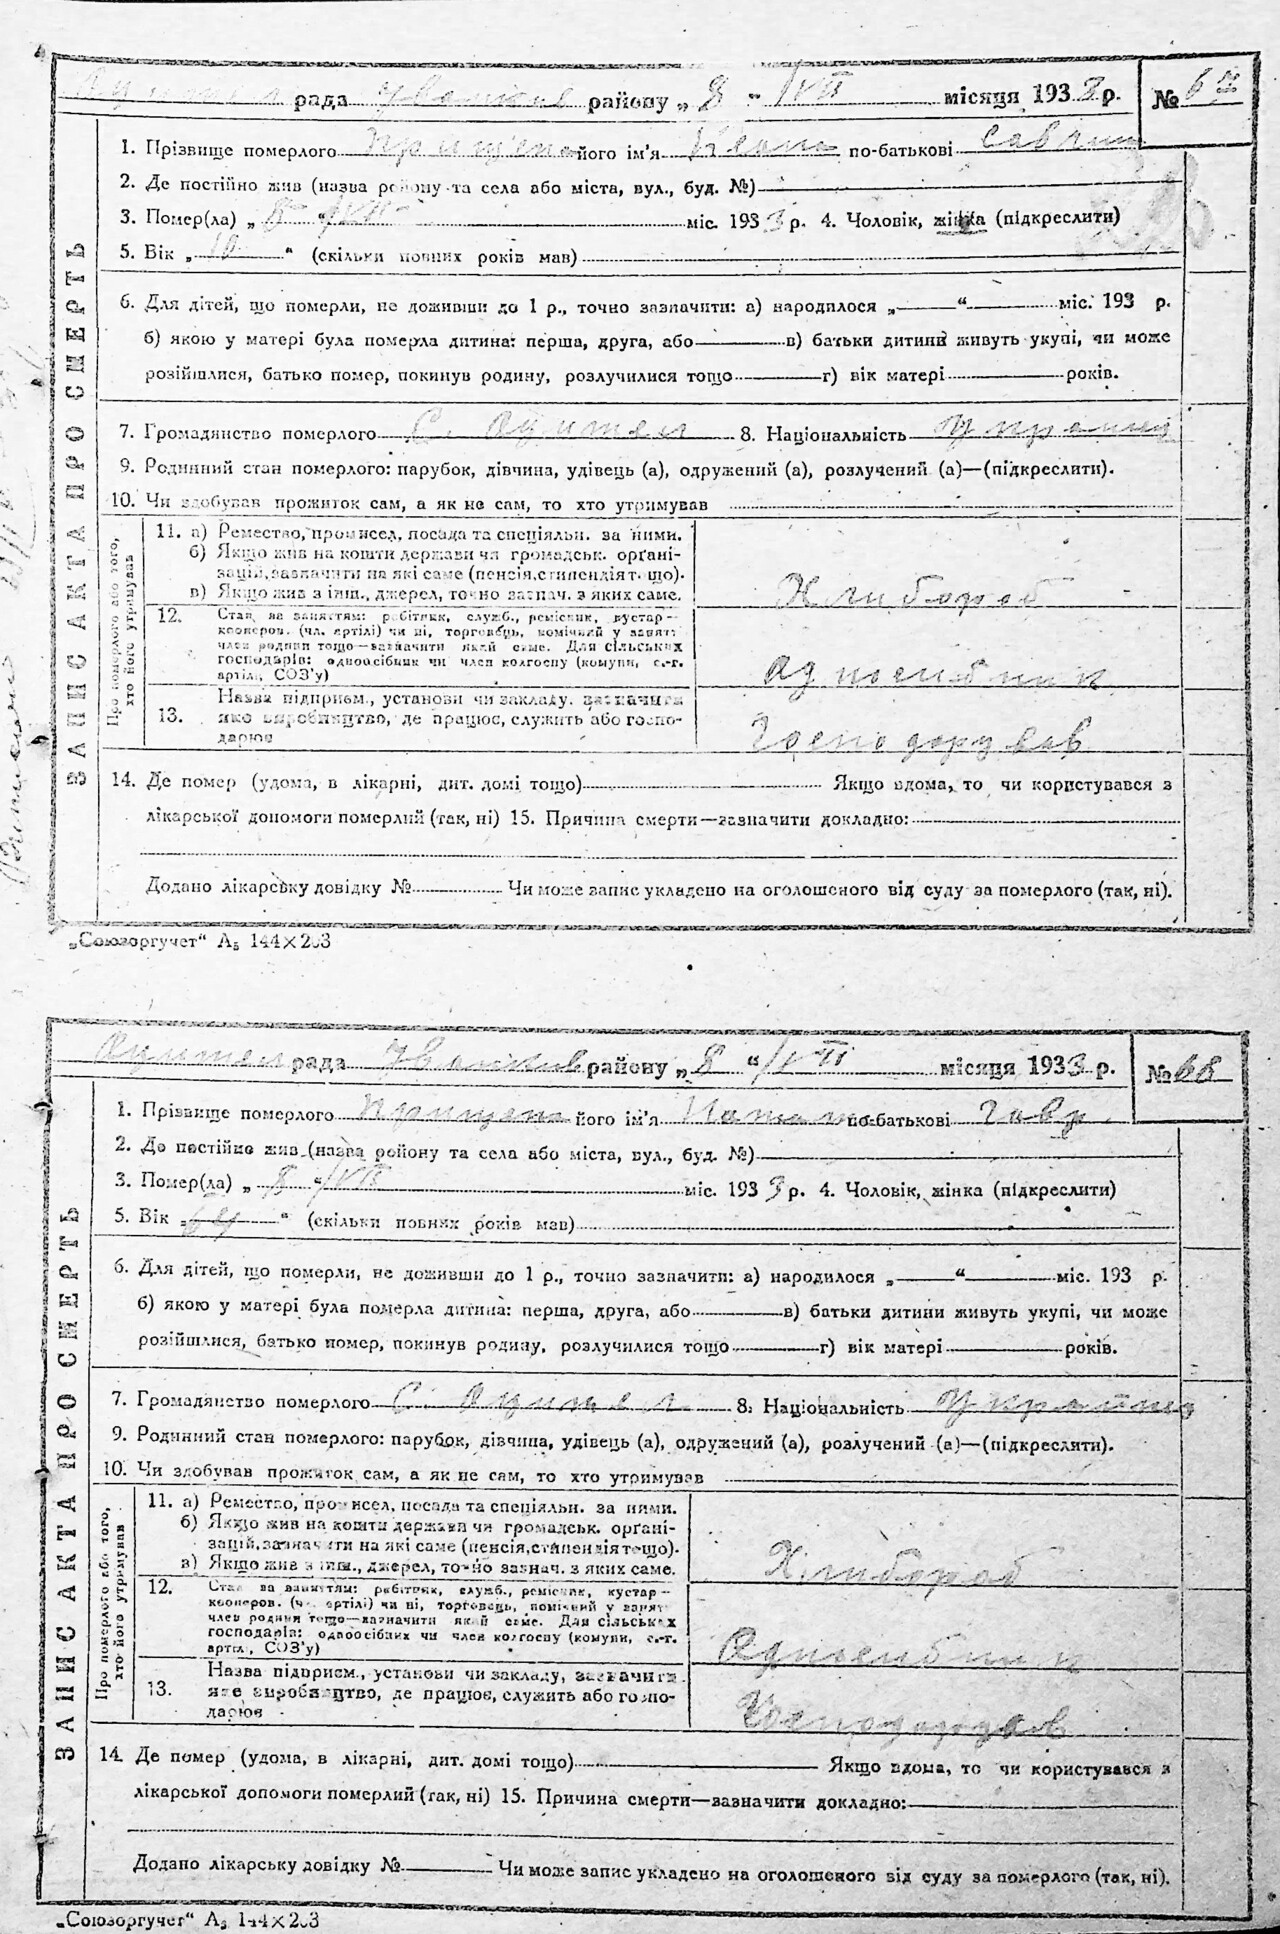 рада району „ 8 " /VII місяця 1933 р. № 67
1. Прізвище померлого Прищепа його ім'я по-батькові
2. Де постійно жив (назва району та села або міста, вул., буд. №)
3. Помер(ла) „ 8 " /VII міс. 1933 р. 4. Чоловік, жінка (підкреслити)
5. Вік „ " (скільки повних років мав)
6. Для дітей, що померли, не доживши до 1 р., точно зазначити: а) народилося „ " міс. 193 р.
б) якою у матері була померла дитина: перша, друга, або в) батьки дитини живуть укупі, чи може
розійшлися, батько помер, покинув родину, розлучилися тощо г) вік матері років.
7. Громадянство померлого С. 8. Національність україн
9. Родинний стан померлого: парубок, дівчина, удівець (а), одружений (а), розлучений (а)—(підкреслити).
10. Чи здобував прожиток сам, а як не сам, то хто утримував
ЗАПИС АКТА ПРО СМЕРТЬ
Про померлого або того,
хто його утримував
11. а) Ремество, промисел, посада та спеціяльн. за ними.
б) Якщо жив на кошти держави чи громадськ. органі-
зацій, зазначити на які саме (пенсія, стипендія т. що).
в) Якщо жив з інш., джерел, точно зазнач. з яких саме.
Хлибороб
12. Стан за заняттям: робітник, служб., ремісник, кустар—
кооперов. (чл. артілі) чи ні, торговець, помічний у занят.
член родини тощо—зазначити який саме. Для сільських
господарів: одноосібник чи член колгоспу (комуни, с.-г.
артіли, СОЗ'у)
Одноасибник
13. Назва підприєм., установи чи закладу, зазначити
яке виробництво, де працює, служить або госпо-
дарює
Господарував
14. Де помер (удома, в лікарні, дит. домі тощо) Якщо вдома, то чи користувався з
лікарської допомоги померлий (так, ні) 15. Причина смерти—зазначити докладно:
Додано лікарську довідку № Чи може запис укладено на оголошеного від суду за померлого (так, ні).
„Союзоргучет" А₅ 144×203
рада району „ 8 " /VII місяця 1933 р. № 68
1. Прізвище померлого Прищепа його ім'я по-батькові Гавр.
2. Де постійно жив (назва району та села або міста, вул., буд. №)
3. Помер(ла) „ 8 " /VII міс. 1933 р. 4. Чоловік, жінка (підкреслити)
5. Вік „ 64 " (скільки повних років мав)
6. Для дітей, що померли, не доживши до 1 р., точно зазначити: а) народилося „ " міс. 193 р.
б) якою у матері була померла дитина: перша, друга, або в) батьки дитини живуть укупі, чи може
розійшлися, батько помер, покинув родину, розлучилися тощо г) вік матері років.
7. Громадянство померлого С. 8. Національність україн
9. Родинний стан померлого: парубок, дівчина, удівець (а), одружений (а), розлучений (а)—(підкреслити).
10. Чи здобував прожиток сам, а як не сам, то хто утримував
ЗАПИС АКТА ПРО СМЕРТЬ
Про померлого або того,
хто його утримував
11. а) Ремество, промисел, посада та спеціяльн. за ними.
б) Якщо жив на кошти держави чи громадськ. органі-
зацій, зазначити на які саме (пенсія, стипендія тощо).
в) Якщо жив з інш., джерел, точно зазнач. з яких саме.
Хлибороб
12. Стан за заняттям: робітник, служб., ремісник, кустар—
кооперов. (чл. артілі) чи ні, торговець, помічний у занят.
член родини тощо—зазначити який саме. Для сільських
господарів: одноосібник чи член колгоспу (комуни, с.-г.
артіл., СОЗ'у)
Одноасибник
13. Назва підприєм., установи чи закладу, зазначити
яке виробництво, де працює, служить або госпо-
дарює
Господарував
14. Де помер (удома, в лікарні, дит. домі тощо) Якщо вдома, то чи користувався з
лікарської допомоги померлий (так, ні) 15. Причина смерти—зазначити докладно:
Додано лікарську довідку № Чи може запис укладено на оголошеного від суду за померлого (так, ні).
„Союзоргучет" А₅ 144×203